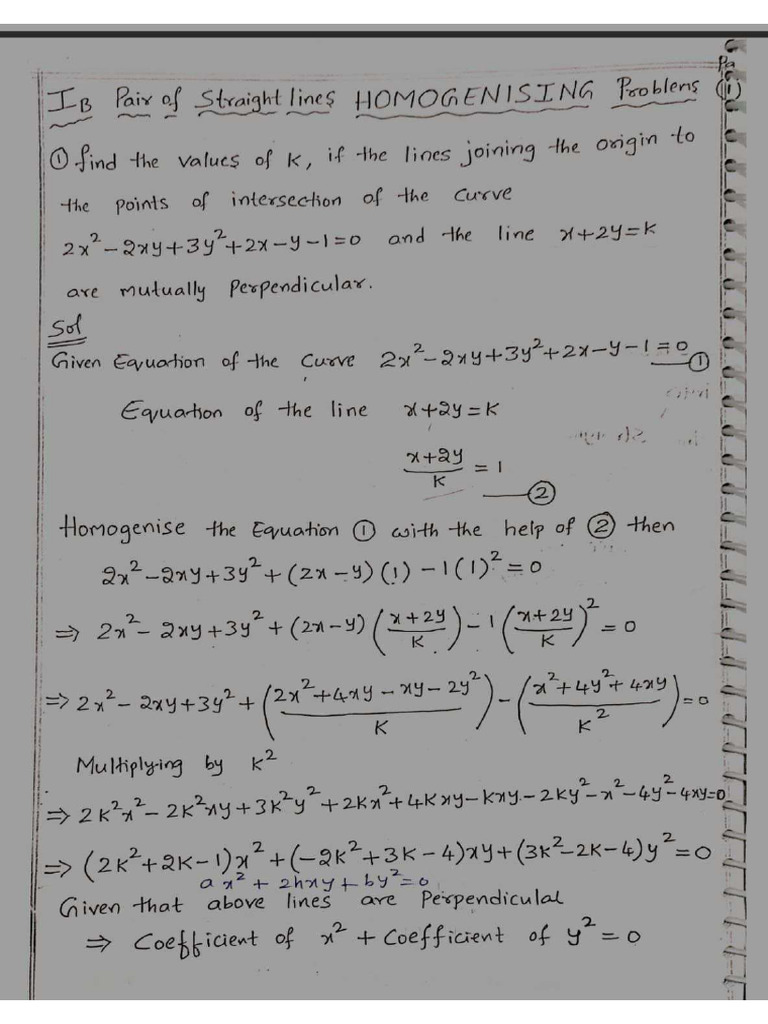 I B Pair of Straight lines HOMOGENISING Problems (1)
① find the values of K, if the lines joining the origin to
the points of intersection of the curve
2x² - 2xy + 3y² + 2x - y - 1 = 0 and the line x + 2y = K
are mutually perpendicular.
Sol
Given Equation of the curve 2x² - 2xy + 3y² + 2x - y - 1 = 0 —①
Equation of the line x + 2y = K
(x + 2y)/K = 1 —②
Homogenise the Equation ① with the help of ② then
2x² - 2xy + 3y² + (2x - y)(1) - 1(1)² = 0
⇒ 2x² - 2xy + 3y² + (2x - y)((x + 2y)/K) - 1((x + 2y)/K)² = 0
⇒ 2x² - 2xy + 3y² + ((2x² + 4xy - xy - 2y²)/K) - ((x² + 4y² + 4xy)/K²) = 0
Multiplying by K²
⇒ 2K²x² - 2K²xy + 3K²y² + 2Kx² + 4Kxy - Kxy - 2Ky² - x² - 4y² - 4xy = 0
⇒ (2K² + 2K - 1)x² + (-2K² + 3K - 4)xy + (3K² - 2K - 4)y² = 0
ax² + 2hxy + by² = 0
Given that above lines are Perpendiculal
⇒ Coefficient of x² + Coefficient of y² = 0